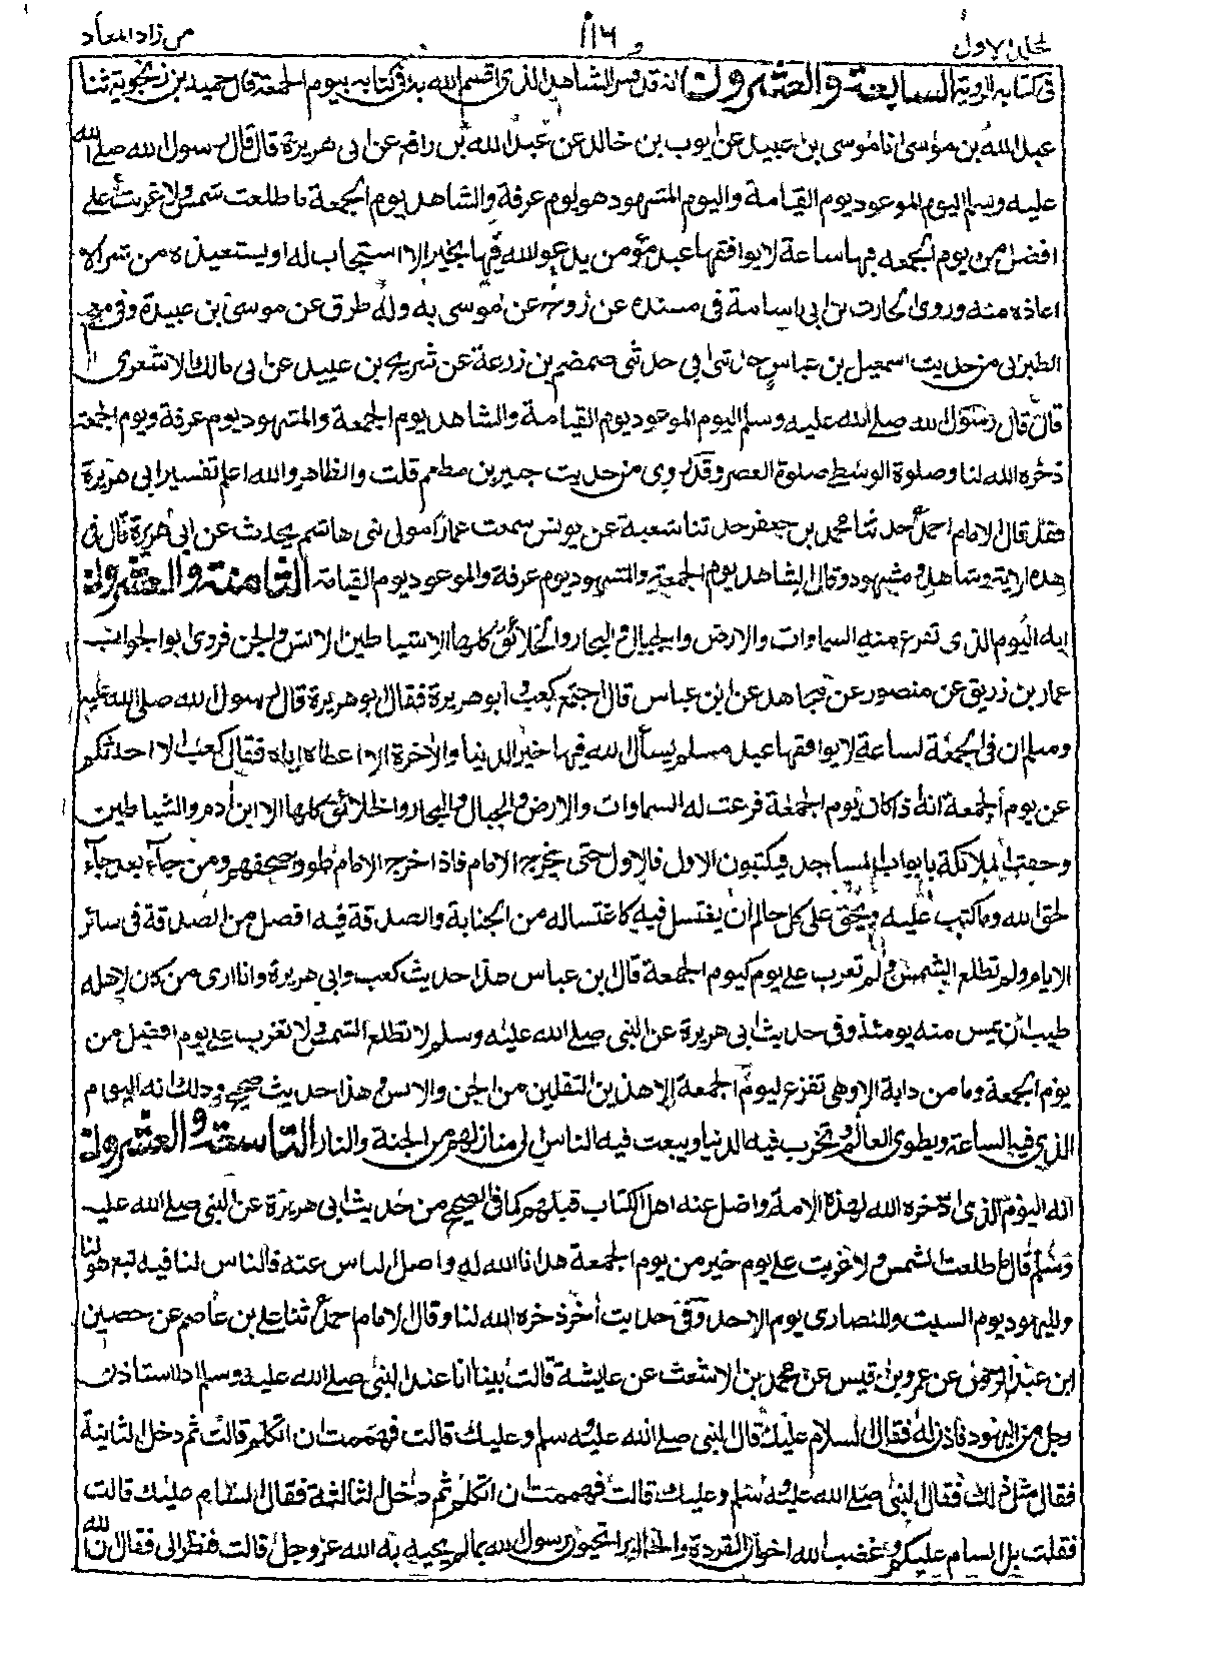 المجلد الاول
١١٦
من زاد المعاد
فى كتابه الروية السابعة والعشرون) انه قد فسر الشاهد الذى اقسم الله به فى كتابه بيوم الجمعة قال حميد بن زنجوية ثنا
عبد الله بن موسى انا موسى بن عبيد عن ايوب بن خالد عن عبد الله بن رافع عن ابى هريرة قال قال رسول الله صلى الله
عليه وسلم اليوم الموعود يوم القيامة واليوم المشهود هو يوم عرفة والشاهد يوم الجمعة ما طلعت شمس ولا غربت على
افضل من يوم الجمعه فيها ساعة لا يوافقها عبد مؤمن يدعو الله فيها بخير الا استجاب له او يستعيذه من شر الا
اعاذه منه وروى الحارث بن ابى اسامة فى مسنده عن روح عن موسى به وله طرق عن موسى بن عبيدة وفى معجم
الطبرانى من حديث اسمعيل بن عباس حدثنى ابى حدثنى ضمضم بن زرعة عن شريح بن عبيد عن ابى مالك الاشعرى
قال قال رسول الله صلى الله عليه وسلم اليوم الموعود يوم القيامة والشاهد يوم الجمعة والمشهود يوم عرفة ويوم الجمعة
ذخره الله لنا وصلوة الوسطى صلوة العصر وقد روى من حديث جبير بن مطعم قلت والظاهر والله اعلم تفسير ابى هريرة
فقد قال الامام احمد حدثنا محمد بن جعفر حدثنا شعبة عن يونس سمعت عمارا مولى بنى هاشم يحدث عن ابى هريرة قال فى
هذه الاية وشاهد ومشهود وقال الشاهد يوم الجمعة والمشهود يوم عرفة والموعود يوم القيامة الثامنة والعشرون
انه اليوم الذى تفزع منه السماوات والارض والجبال والبحار والخلائق كلها الا شياطين الانس والجن فروى ابو الجواب
عمار بن زريق عن منصور عن مجاهد عن ابن عباس قال اجتمع كعب وابو هريرة فقال ابو هريرة قال رسول الله صلى الله عليه
وسلم ان فى الجمعة لساعة لا يوافقها عبد مسلم يسأل الله فيها خير الدنيا والاخرة الا اعطاه اياه فقال كعب الا احدثكم
عن يوم الجمعة انه اذا كان يوم الجمعة فزعت له السماوات والارض والجبال والبحار والخلائق كلها الا ابن ادم والشياطين
وحفت الملائكة بابواب المساجد فيكتبون الاول فالاول حتى يخرج الامام فاذا خرج الامام طووا صحفهم ومن جآء بعد جآء
لحق الله وما كتب عليه ويحق على كل حالم ان يغتسل فيه كاغتساله من الجنابة والصدقة فيه افضل من الصدقة فى سائر
الايام ولم تطلع الشمس ولم تغرب على يوم كيوم الجمعة قال ابن عباس هذا حديث كعب وابى هريرة وانا ارى من كان لاهله
طيب ان يمس منه يومئذ وفى حديث ابى هريرة عن النبى صلى الله عليه وسلم لا تطلع الشمس ولا تغرب على يوم افضل من
يوم الجمعة وما من دابة الا وهى تفزع ليوم الجمعة الا هذين الثقلين من الجن والانس وهذا حديث صحيح وذلك انه اليوم
الذى فيه الساعة ويطوى العالم وتخرب فيه الدنيا ويبعث فيه الناس الى منازلهم من الجنة والنار التاسعة والعشرون
انه اليوم الذى ذخره الله لهذه الامة واضل عنه اهل الكتاب قبلهم كما فى الصحيح من حديث ابى هريرة عن النبى صلى الله عليه
وسلم قال ما طلعت الشمس ولا غربت على يوم خير من يوم الجمعة هدانا الله له واضل الناس عنه فالناس لنا فيه تبع هو لنا
ولليهود يوم السبت وللنصارى يوم الاحد وفى حديث اخر ذخره الله لنا وقال الامام احمد ثنا على بن عاصم عن حصين
ابن عبد الرحمن عن عمرو بن قيس عن محمد بن الاشعث عن عايشة قالت بينا انا عند النبى صلى الله عليه وسلم اذ استاذن
رجل من اليهود فاذن له فقال السلام عليك قال النبى صلى الله عليه وسلم وعليك قالت فهممت ان اتكلم قالت ثم دخل الثانية
فقال مثل ذلك فقال النبى صلى الله عليه وسلم وعليك قالت فهممت ان اتكلم ثم دخل الثالثة فقال السام عليك قالت
فقلت بل السام عليكم وغضب الله اخوان القردة والخنازير اتحيون رسول الله بما لم يحيه به الله عز وجل قالت فنظر الى فقال ان الله